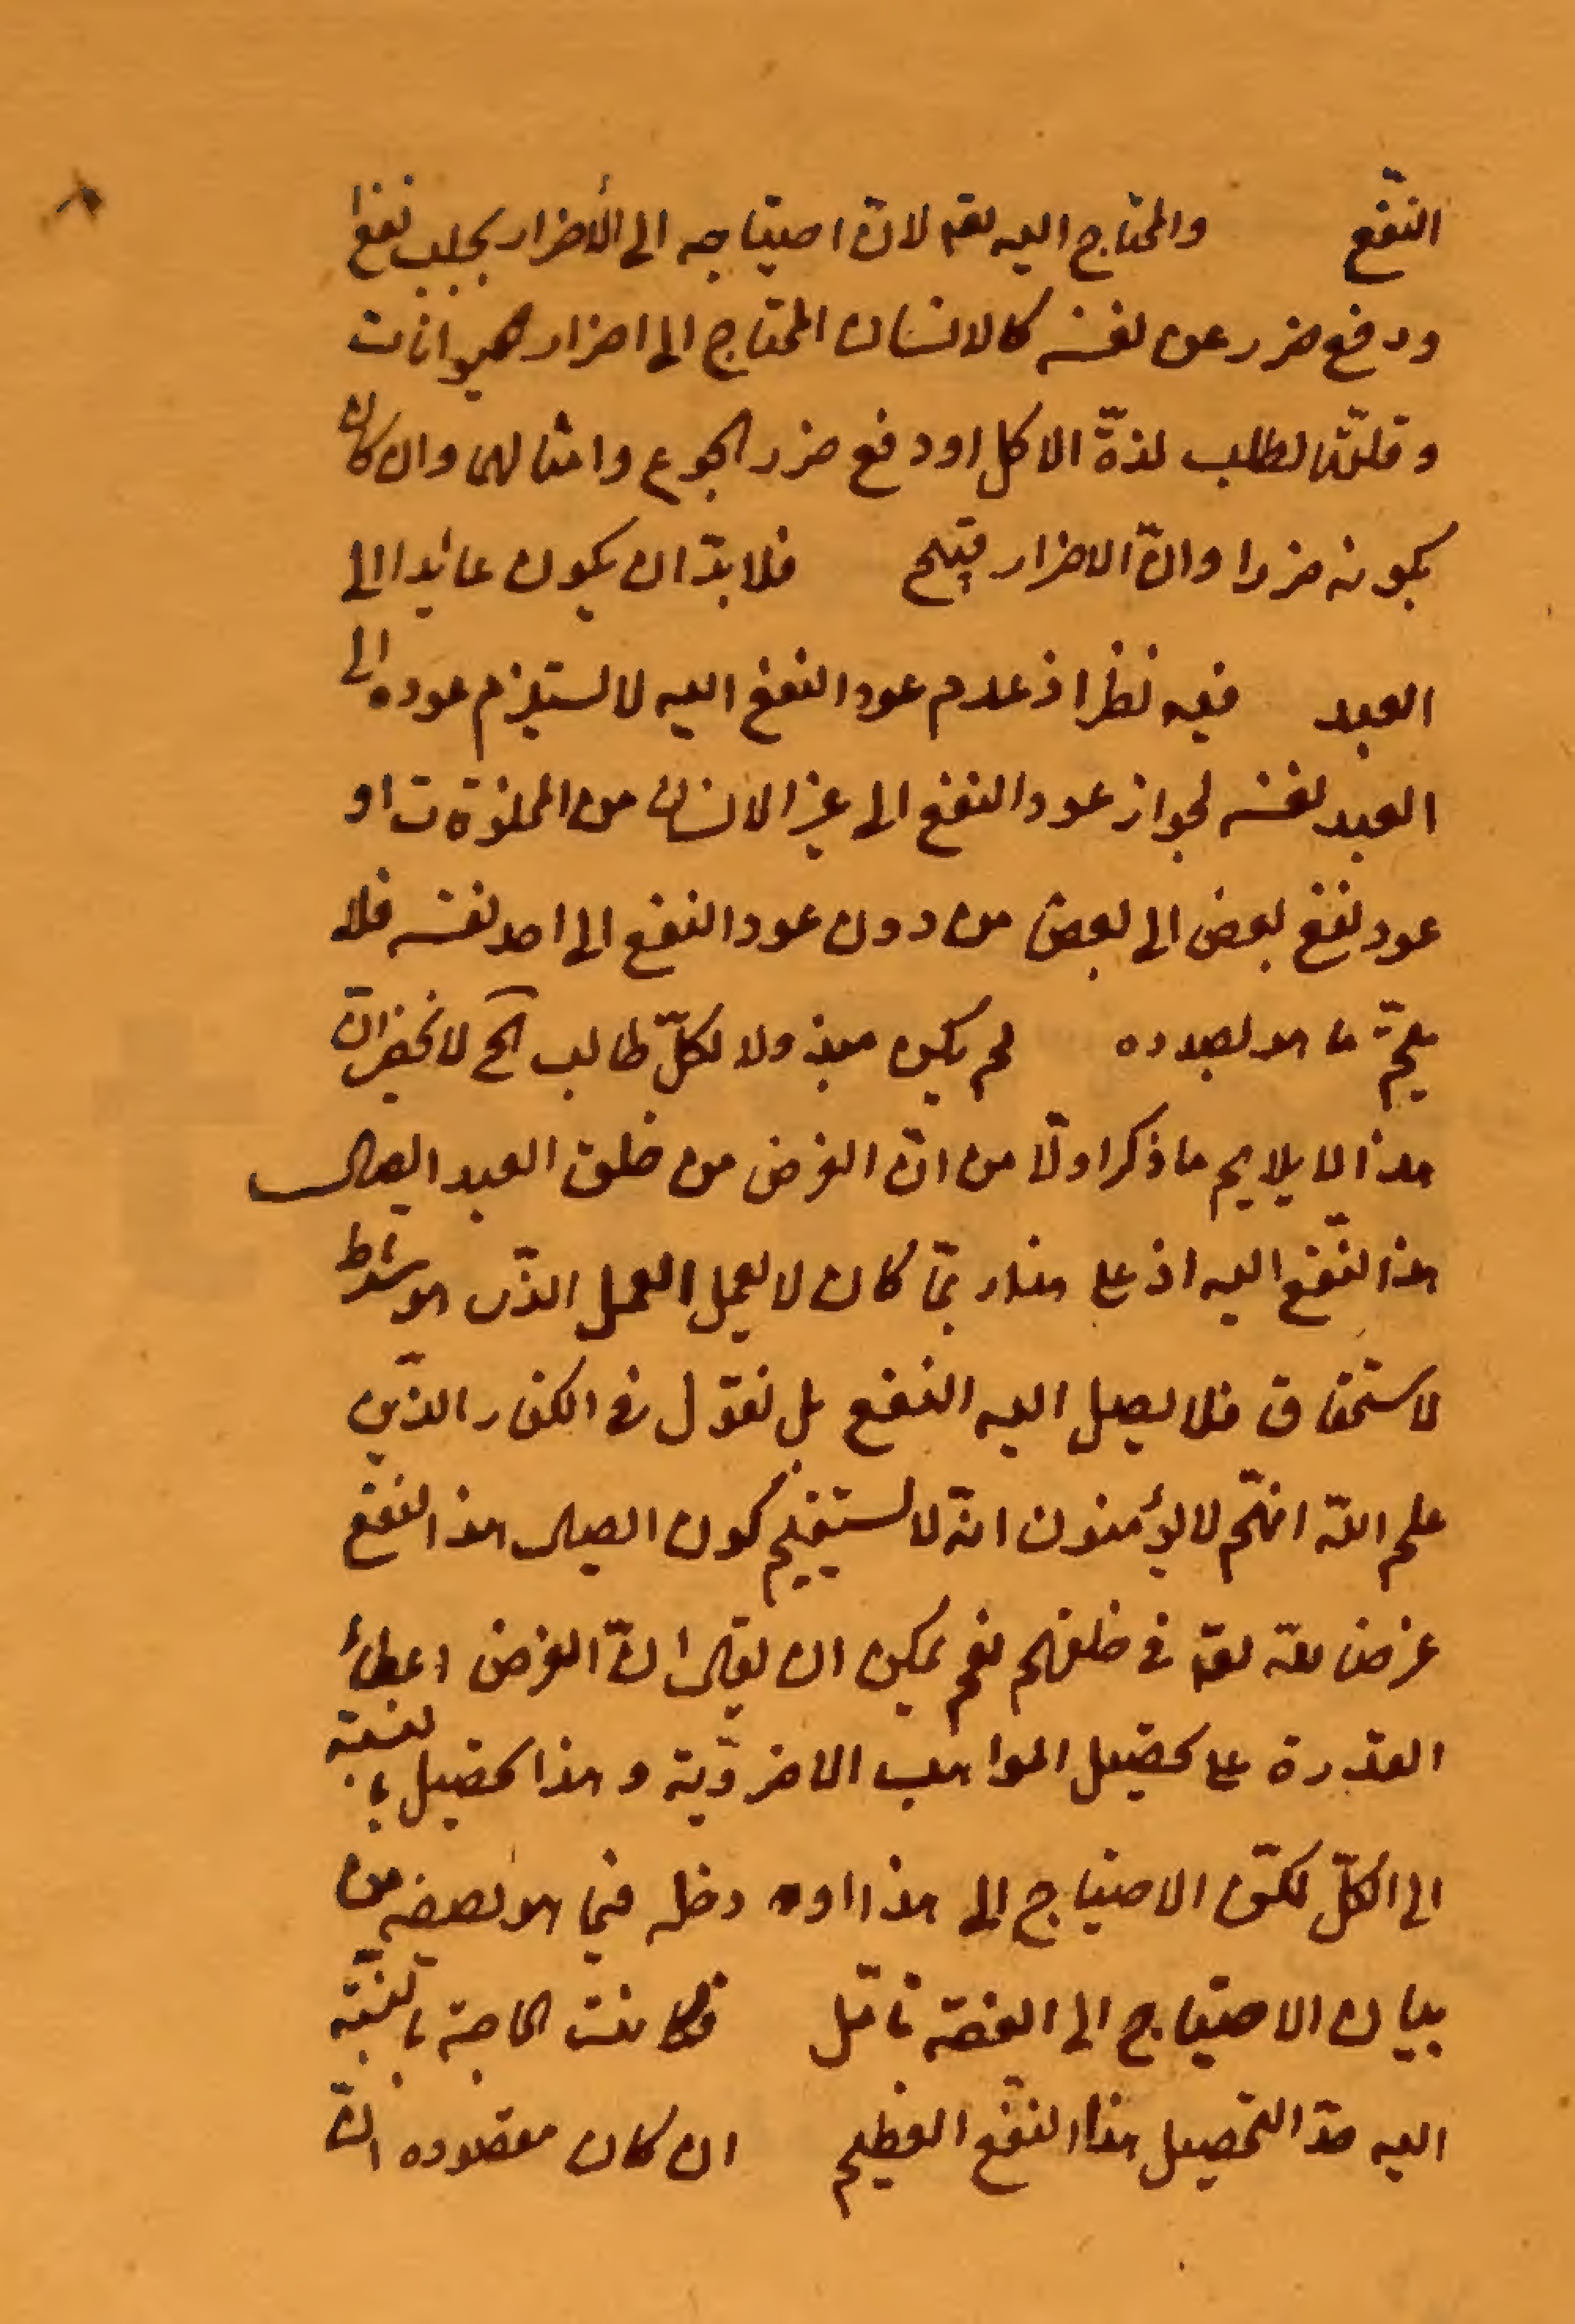 النفّع والمحتاج اليه لقم لانّ احتياجه الى الأضرار بجلب نفع
ودفع ضرر عن نفسه كالانسان المحتاج الى اضرار حيوانات
وقتلها لطلب لذّة الاكل او دفع ضرر الجوع وامثالها وان كان
بكونه ضررا وانّ الاضرار قبيح فلا بدّ ان يكون عائدا الى
العبد فيه نظر اذ عدم عود النفع اليه لا يستلزم عوده الى
العبد نفسه لجواز عود النفع الى غير الانسان من المخلوقات او
عود نفع بعض الى بعض من دون عود النفع الى احد نفسه فلا
يتمّ ما هو بصدده لم يكن مبذولا لكلّ طالب الخ لا يخفى انّ
هذا لا يلايم ما ذكر اولّا من انّ الغرض من خلق العبد ايصال
هذا النفّع اليه اذ على هذا ربّما كان لا يعمل العمل الذّى هو شرط
لاستحقاق فلا يصل اليه النفع بل نقول فى الكفار الذّين
علم اللّه انهّم لا يؤمنون انهّ لا يستقيم كون ايصال هذا النفع
غرض للّه تعه فى خلقهم نعم يمكن ان يقال انّ الغرض اعطاء
القدرة على تحصيل المواهب الاخرويّة وهذا تحصيل بالنسبة
الى الكلّ لكنّ الاحتياج الى هذا دخله فيما هو بصدده من
بيان الاحتياج الى الفقه تامّل فكانت الحاجة بالنسّبة
اليه جدّا لتحصيل هذا النفّع العظيم ان كان مقصوده انّ